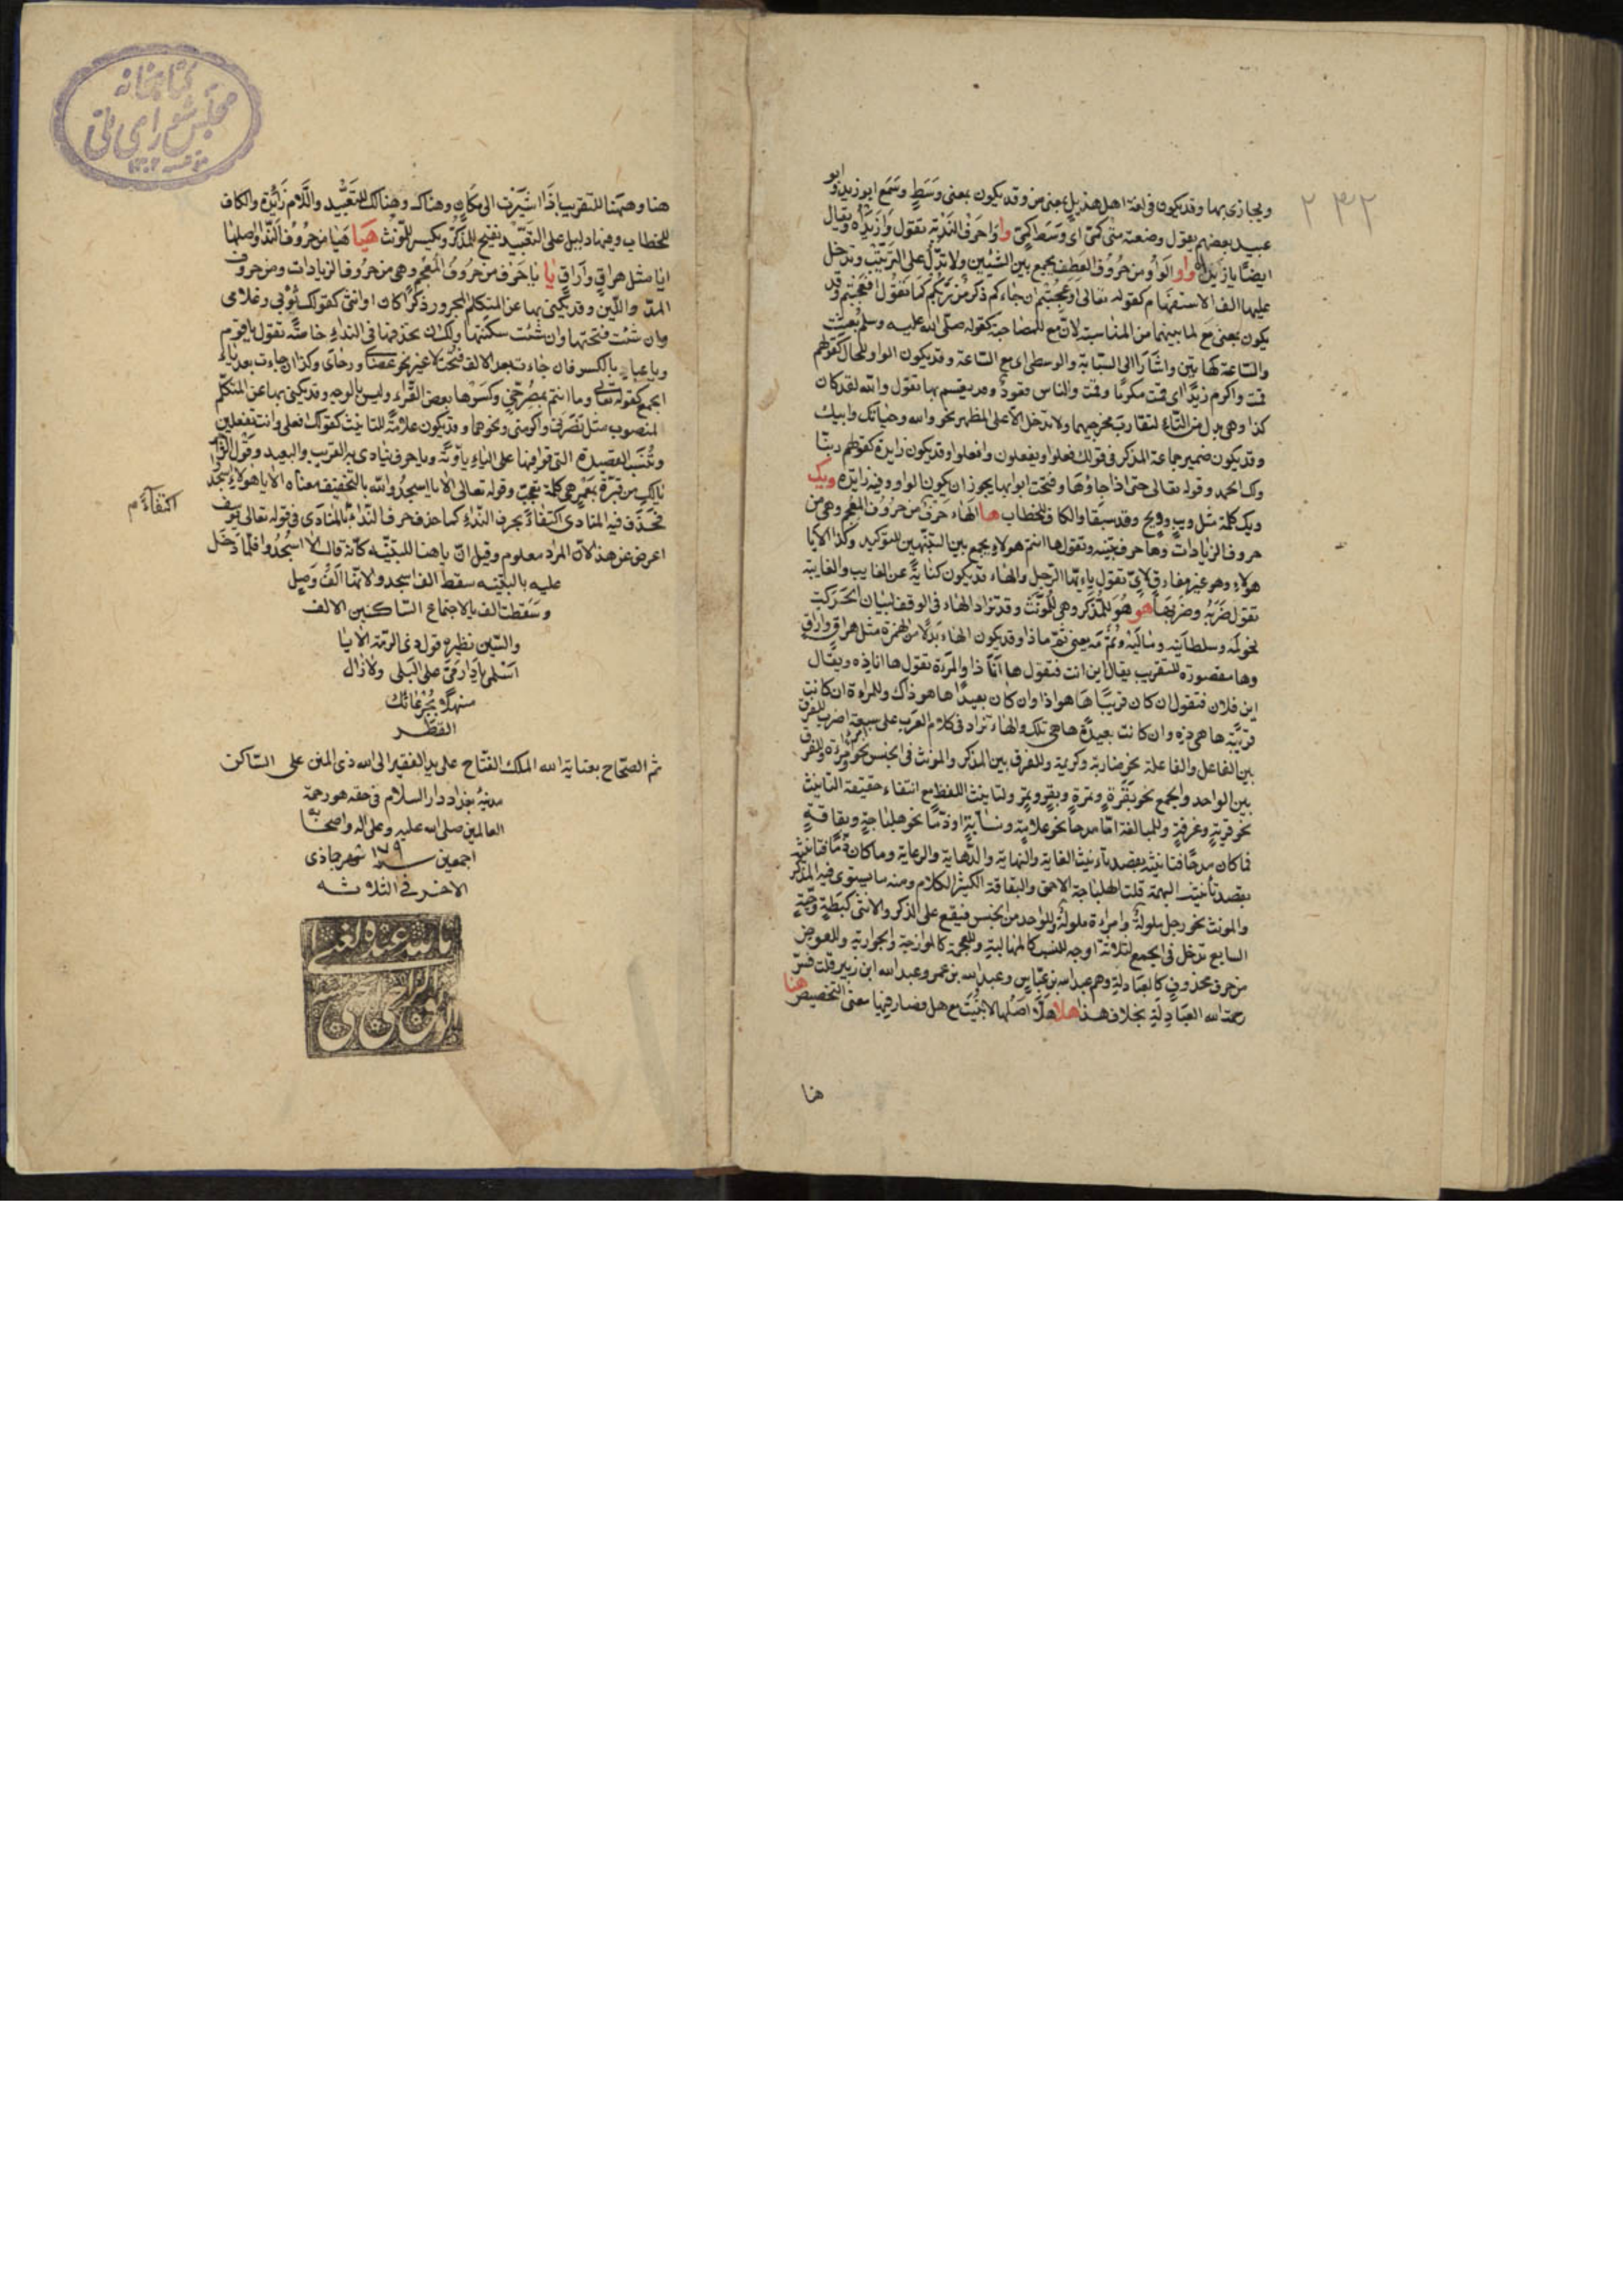 ويجازى بها وقد يكون فى لغة اهل هذيل بمعنى من وقد يكون بمعنى وسط وسمع ابو زيد وابو
عبيد بعضهم يقول وضعته متى كمّى اى وسط كمّى وا وا حرف الندبة تقول وا زيداه ويقال
ايضًا يا زيداه واو الواو من حروف العطف يجمع بين الشيئين ولا تدلّ على الترتيب وتدخل
عليها الف الاستفهام كقوله تعالى اوعجبتم ان جاءكم ذكر من ربكم كما تقول افعجبتم وقد
يكون بمعنى مع لما بينهما من المناسبة لانّ مع للمصاحبة كقوله صلّى الله عليه وسلم بعثت
والساعة كهاتين واشار الى السبّابة والوسطى اى مع الساعة وقد يكون الواو للحال كقولهم
قمت واكرم زيدًا اى قمت مكرمًا وقمت والناس قعود وقد يقسم بها تقول والله لقد كان
كذا وهى بدل من التاء لتقارب مخرجيهما ولا تدخل الا على المظهر نحو والله وحياتك وابيك
وقد يكون ضمير جماعة المذكر فى قولك فعلوا ويفعلون وافعلوا وقد يكون زايدة كقولهم ربنا
ولك الحمد وقوله تعالى حتى اذا جاؤها وفتحت ابوابها يجوز ان يكون الواو فيه زايدة ويك
ويك كلمة مثل ويب وويح وقد سبقا والكاف للخطاب ها الهاء حرف من حروف المعجم وهى من
حروف الزيادات وها حرف تنبيه وتقول ها انتم هولاء يجمع بين التنبيهين للتوكيد وكذا الا يا
هولاء وهو غير مفارق لاىّ تقول يا ايّها الرجل والهاء قد يكون كناية عن الغايب والغايبة
تقول ضربه وضربها هو هو للمذكر وهى للمؤنث وقد تزاد الهاء فى الوقف لبيان الحركت
نحو لمه وسلطانيه وماليه وثم مه يعنى ثم ماذا وقد يكون الهاء بدلًا من الهمزة مثل هراق واراق
وها مقصورة للتقريب يقال اين انت فتقول ها انا ذا والمرءة تقول ها اناذه ويقال
اين فلان فتقول ان كان قريبًا ها هو اذا وان كان بعيدًا ها هو ذاك وللمراءة ان كانت
قريبة ها هى ذه وان كانت بعيدة ها هى تلك والهاء تزاد فى كلام العرب على سبعة اضرب للفرق
بين الفاعل والفاعلة نحو ضاربة وكريمة وللفرق بين المذكر والمونث فى الجنس نحو امرءة وللفرق
بين الواحد والجمع نحو بقرة وتمرة وبقر وتمر ولتانيث اللفظ مع انتفاء حقيقة التانيث
نحو قرية وغرفة وللمبالغة امّا مدحا نحو علامة ونسّابة او ذمّا نحو هلباجة وبقاقة
فما كان مدحًا فتانيثه بقصد تانيث الغاية والنهاية والداهية وما كان ذمّا فتانيثه
بقصد تانيث البهيمة قلت الهلباجة الاحمق والبقاقة الكثير الكلام ومنه ما يستوى فيه المذكر
والمونث نحو رجل ملولة وامراءة ملولة وللواحد من الجنس فيقع على الذكر والانثى كبطة وحية
السابع تدخل فى الجمع لثلاثة اوجه للنسب كالمهالبة وللعجمة كالموازجة والجواربة وللعوض
من حرف محذوف كالعبادلة وهم عبد الله بن عباس وعبد الله بن عمر وعبد الله ابن زبير قلت فسّر
رحمة الله العبادلة بخلاف هذا هلا هلّا اصلها لا بنيت مع هل فصار فيها معنى التحضيض هنا
هنا
٢٣٢
كتابخانه
مجلس شوراى ملّى
هنا وههنا للتقريب اذا اشرت الى مكان وهناك وهنالك للتبعيد واللام زائدة والكاف
للخطاب وفيها دليل على التبعيد تفتح للمذكر وتكسر للمونث هيا هيا من حروف النداء واصلها
ايا مثل هراق واراق يا يا حرف من حروف المعجم وهى من حروف الزيادات ومن حروف
المدّ واللين وقد يكنى بها عن المتكلم المجرور ذكرًا كان او انثى كقولك ثوبى وغلامى
وان شئت فتحتها وان شئت سكنتها ولك ان تحذفها فى النداء خاصّة تقول يا قوم
ويا عباد بالكسر فان جاءت بعد الالف فتحت لا غير نحو عصاى ورحاى وكذا ان جاءت بعد ياء
الجمع كقوله تعالى وما انتم بمصرخىّ وكسرها بعض القراء وليس بالوجه وقد يكنى بها عن المتكلم
المنصوب مثل نصرنى واكرمنى ونحوهما وقد يكون علامة للتانيث كقولك افعلى وانت تفعلين
وتنسب القصيدة التى قوافيها على الياء ياويّة ويا حرف ينادى به القريب والبعيد وقول الرّاجز
يا لك من قبّرة بمعمر هى كلمة تعجّب وقوله تعالى الا يا اسجدوا لله بالتخفيف معناه الا يا هولاء اسجدوا
فحذف فيه المنادى اكتفاءً بحرف النداء كما حذف حرف النداء بالمنادى فى قوله تعالى يوسف
اكتفاءً م
اعرض عن هذا لانّ المراد معلوم وقيل انّ يا هنا للتنبيه كانه قال الا اسجدوا فلمّا دخل
عليه يا للتنبيه سقط الف اسجدوا لانها الف وصل
وسقطت الف يا لاجتماع الساكنين الالف
والسّين نظيره قول ذى الرمّة الا يا
اسلمى يا دار مىّ على البلى ولا زال
منهلّا بجرعائك
القطر
تم الصّحاح بعناية الله الملك الفتّاح على يد الفقير الى الله ذى المنن على الساكن
مدينة بغداد دار السلام فى حقه هو رحمة
العالمين صلى الله عليه وعلى اله واصحابه
اجمعين سنة شهر جماذى
الاخر فى الثلاثه